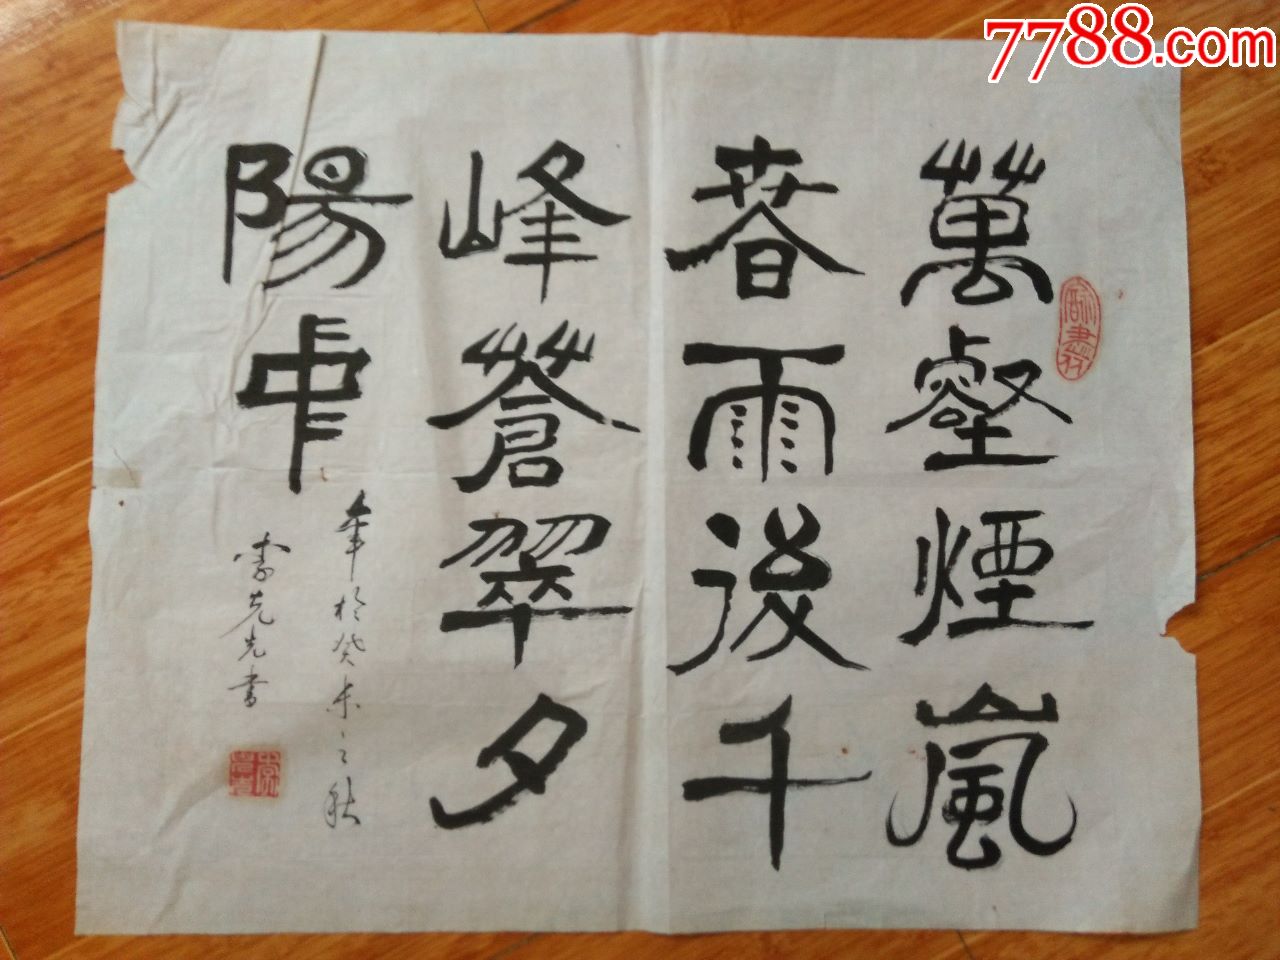 萬壑煙嵐
春雨後千
峰蒼翠夕
陽中
年於癸未之秋
先書
7788.com